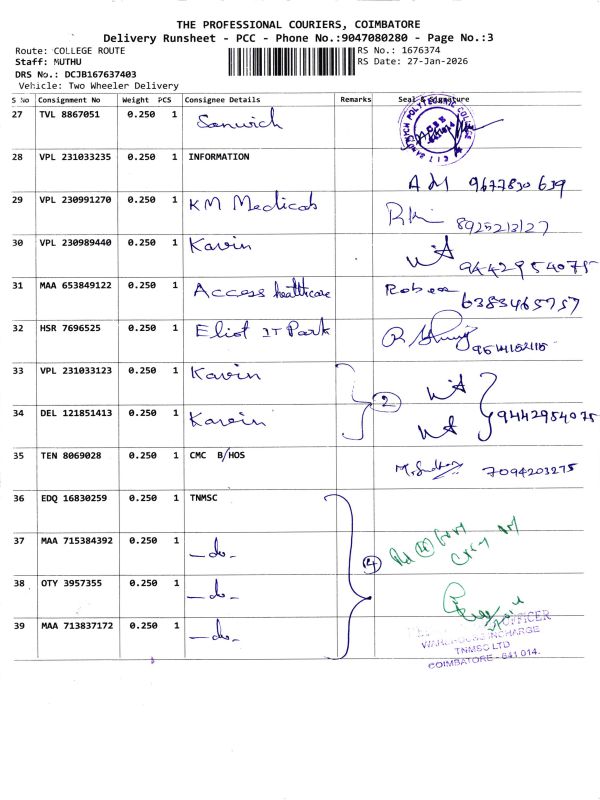 THE PROFESSIONAL COURIERS, COIMBATORE
Delivery Runsheet - PCC - Phone No.:9047080280 - Page No.:3
Route: COLLEGE ROUTE RS No.: 1676374
Staff: MUTHU RS Date: 27-Jan-2026
DRS No.: DCJB167637403
Vehicle: Two Wheeler Delivery
S No Consignment No Weight PCS Consignee Details Remarks Seal & Signature
27 TVL 8867051 0.250 1 Sanwich
28 VPL 231033235 0.250 1 INFORMATION
9677830639
29 VPL 230991270 0.250 1 KM Medicals
30 VPL 230989440 0.250 1 Kavin
9442954075
31 MAA 653849122 0.250 1 Access healthcare
6383465757
32 HSR 7696525 0.250 1 Eliot IT Park
33 VPL 231033123 0.250 1 Kavin
2
34 DEL 121851413 0.250 1 Kavin 9442954075
35 TEN 8069028 0.250 1 CMC B/HOS 7094203275
36 EDQ 16830259 0.250 1 TNMSC
37 MAA 715384392 0.250 1 -do-
38 OTY 3957355 0.250 1 -do-
OFFICER
39 MAA 713837172 0.250 1 -do-
WAREHOUSE INCHARGE
TNMSC LTD
COIMBATORE - 641 014.